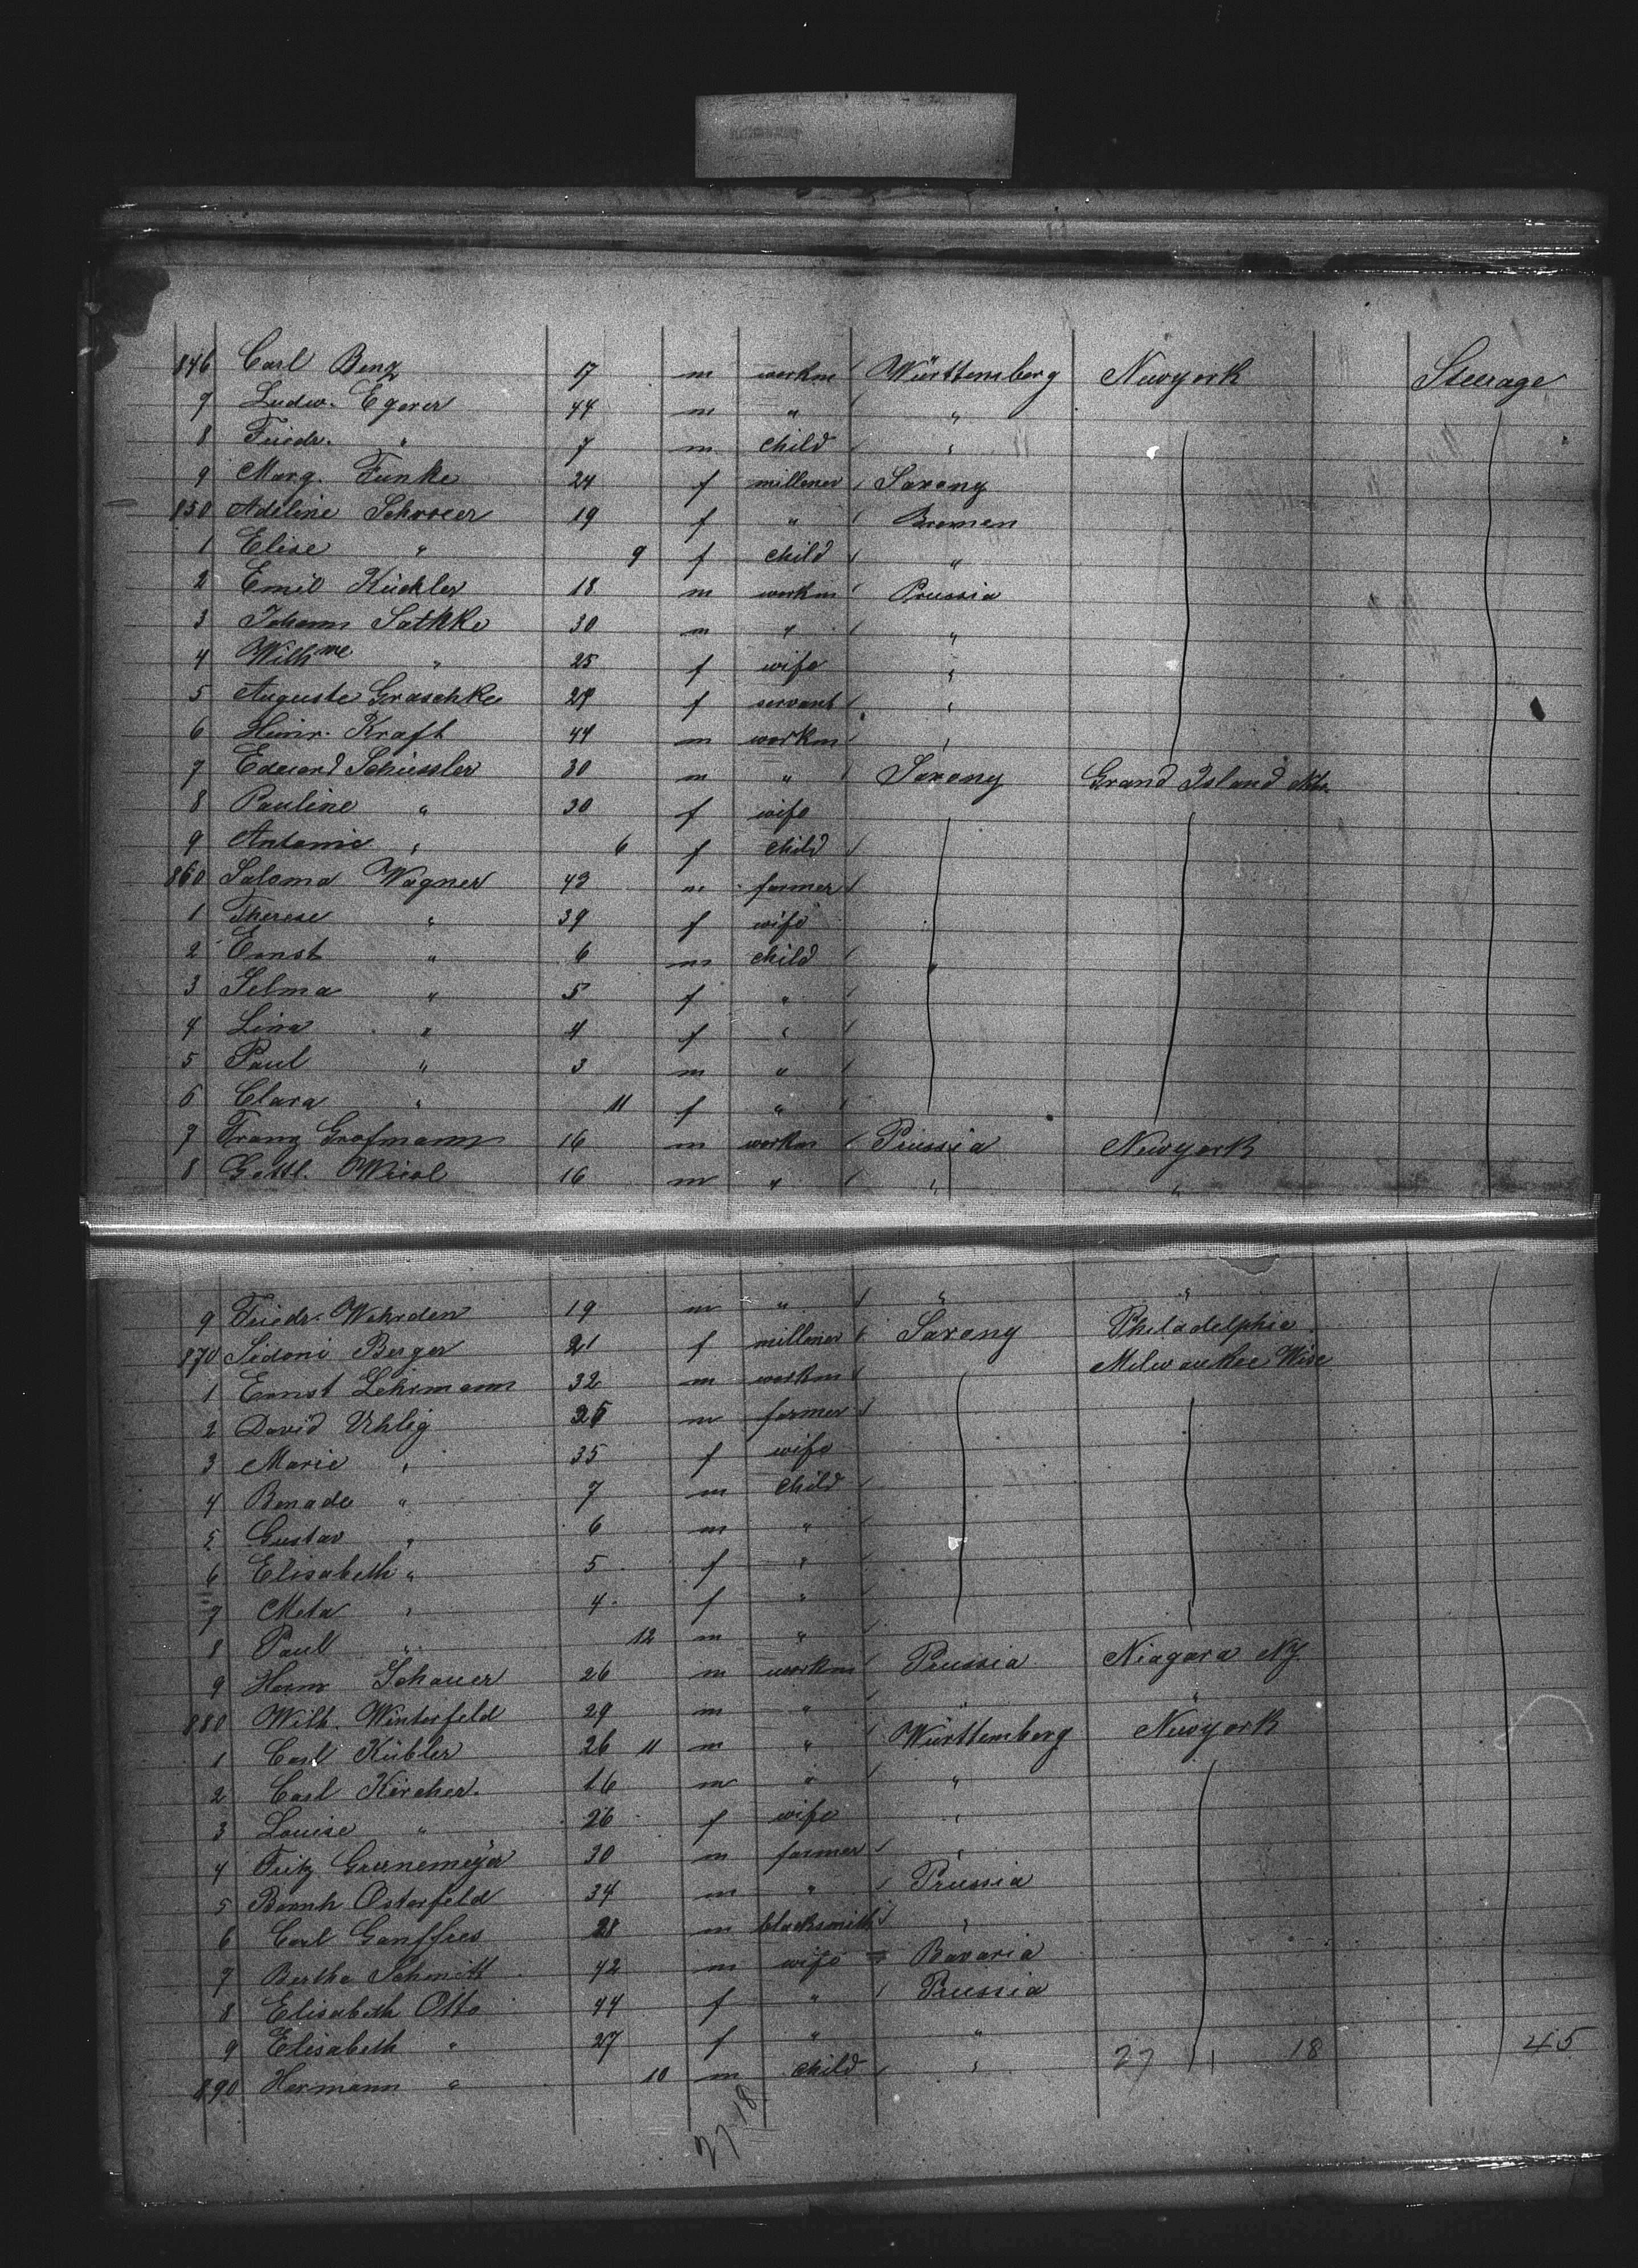 846 Carl Benz 17 m workm Württemberg Newyork Steerage
7 Ludw. Egerer 44 m " "
8 Friedr. " 7 m child "
9 Marg. Funke 24 f millener Saxony
850 Adeline Schroeer 19 f " Bremen
1 Elise " 9 f child "
2 Emil Küchler 18 m workm Prussia
3 Johann Satkke 30 m " "
4 Wilhme " 25 f wife "
5 Auguste Graschke 29 f servant "
6 Heinr. Kraft 44 m workm "
7 Eduard Schüssler 30 m " Saxony Grand Island Nbr.
8 Pauline " 30 f wife
9 Antonie " 6 f child
860 Saloma Wagner 43 m farmer
1 Therese " 39 f wife
2 Ernst " 6 m child
3 Selma " 5 f "
4 Lina " 4 f "
5 Paul " 3 m "
6 Clara " 11 f "
7 Franz Grofmann 16 m workm Prussia Newyork
8 Gottl. 16 m " " "
9 Friedr. Wehrden 19 m " " "
870 Sidoni Berger 21 f millener Saxony Philadelphia
1 Ernst Lehrmann 32 m workm Milwaukee Wisc
2 David Uhlig 35 m farmer
3 Marie " 35 f wife
4 Benade " 7 m child
5 Gustav " 6 m "
6 Elisabeth " 5 f "
7 Meta " 4 f "
8 Paul " 12 m "
9 Herm Schauer 26 m workm Prussia Niagara NY.
880 Wilh. Winterfeld 29 m " " "
1 Carl Kübler 26 11 m " Württemberg Newyork
2 Carl Kircher. 16 m " "
3 Louise " 26 f wife "
4 Fritz Grünemeÿer 30 m farmer "
5 Bernh Osterfeld 34 m " Prussia
6 Carl Ganffres 28 m blacksmith "
7 Bertha Schmitt 42 m wife Bavaria
8 Elisabeth Otto 44 f " Prussia
9 Elisabeth " 27 f " "
890 Hermann " 10 m child " 27 11 18 45
27 18